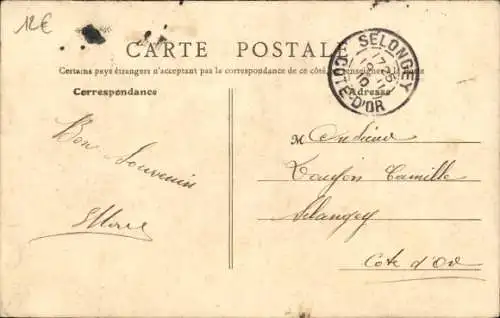 12€
CARTE POSTALE
Certains pays étrangers n'acceptent pas la correspondance de ce côté (se renseigner à la Poste
Correspondance
Adresse
SELONGEY
CÔTE-D'OR
Bon Souvenir
M
Camille
Selongey
Côte d'Or